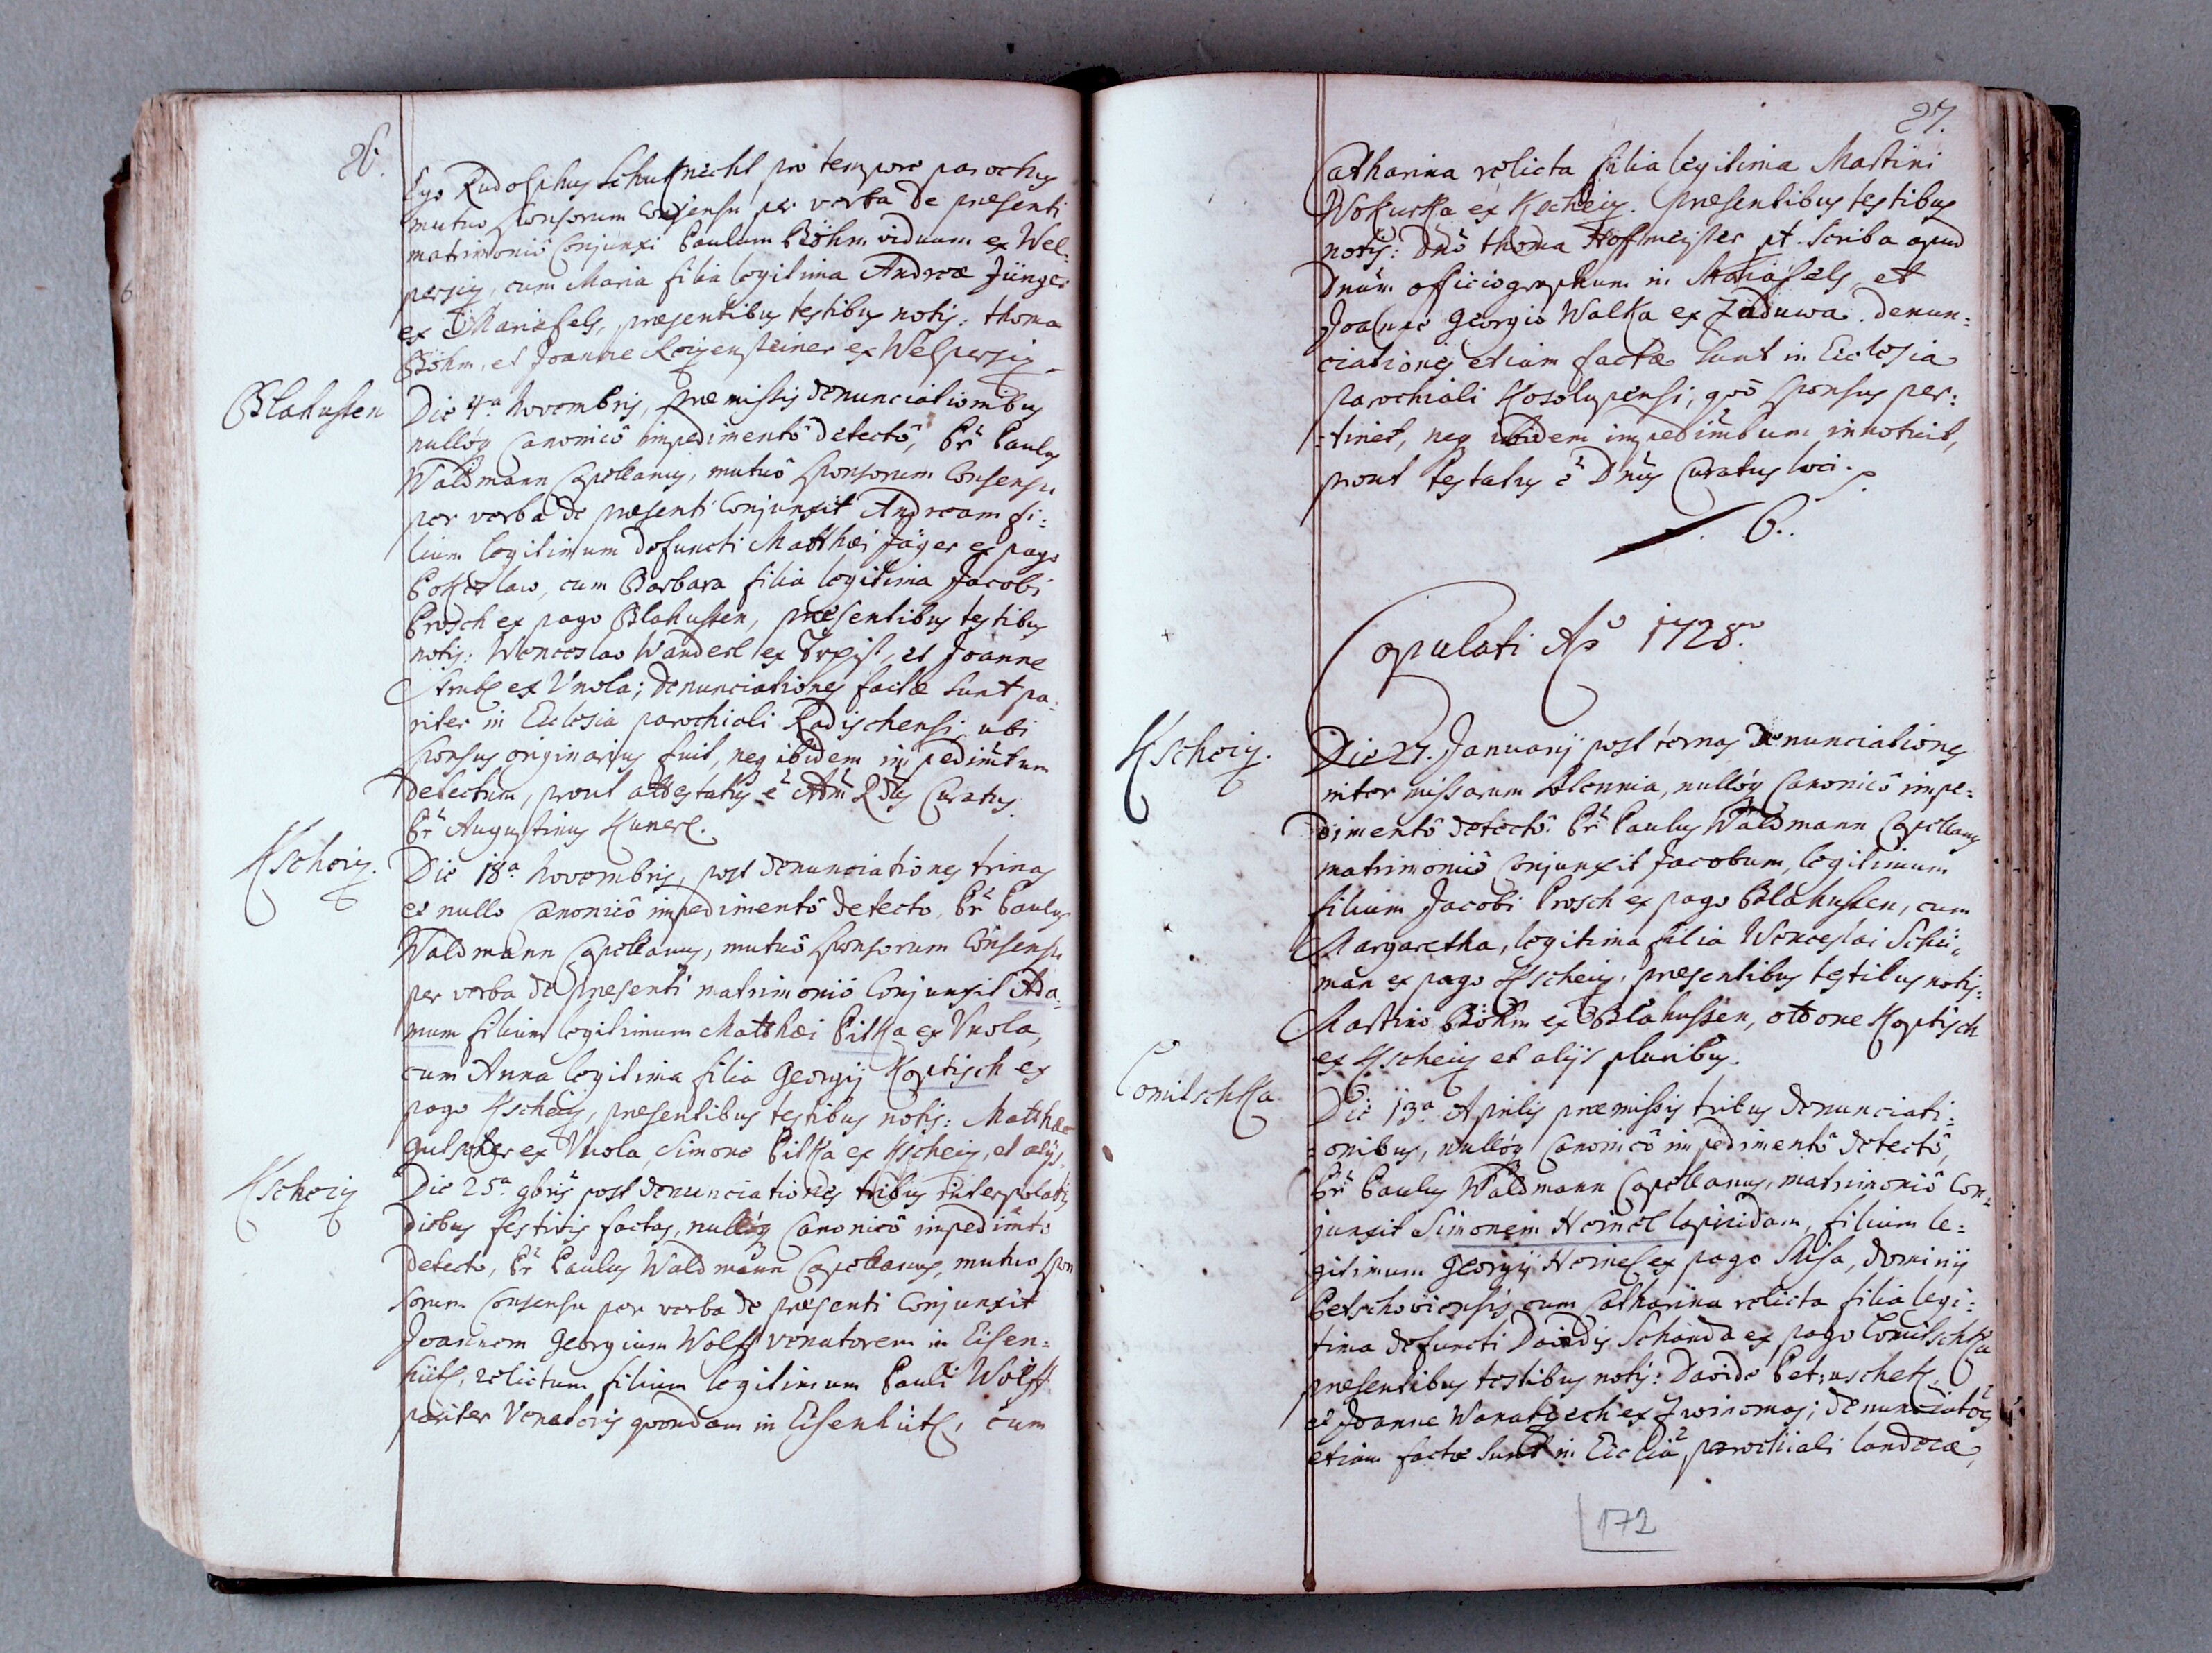 26.
Ego Rudolphus Schuknecht pro tempore parochus
mutuo sponsorum consensu per verba de presenti
matrimoniô conjunxi Paulum Böhm viduum ex Wel=
persig, cum Maria filia legitima Andreæ Jünger
ex Mariafels, præsentibus testibus notis: thoma
Böhm, et Joanne ex Welpersig
Blahusten
Die 4ª Novembris, præmissis denunciationibus
nullóq canonicô impedimentô detectô, Pr Paulus
Waldmann Capellanus, mutuô sponsorum consensu
per verba de præsenti conjunxit Andream fi=
lium legitimum defuncti Matthæi Jäger ex pago
Pokeslaw, cum Barbara filia legitima Jacobi
Prosch ex pago Blahusten, præsentibus testibus
notis: Wenceslao Wanderl ex et Joanne
ex Unola; denunciationes factæ sunt pa=
riter in Ecclesia parochiali Radischensi, ubi
sponsus originarius fuit, neq ibidem impedimtum
detectum, prout attestatus ê Adm Rdus Curatus
Pr Augustinus Kunerl.
Kscheig.
Die 18ª Novembris, post denunciationes trinas
et nullo canonicô impedimentô detecto, Pr Paulus
Waldmann Capellanus, mutuô sponsorum consensu
per verba de præsenti matrimoniô conjunxit Ada=
mum filium legitimum Matthæi Pitka ex Unola,
cum Anna legitima filia Georgij Koptisch ex
pago Kscheig, præsentibus testibus notis: Matthæo
ex Unola, Simone Pitka ex Kscheig, et alijs.
Kscheig
Die 25ª 9bris post denunciationes tribus interpolatis
diebus festivis factas, nullóq canonicô impedimto
detecto, Pr Paulus Waldmann Capellanus, mutuo spon
sorum consensu per verba de præsenti conjunxit
Joannem Georgium Wolff venatorem in Eisen=
hüttl, relictum filium legitimum Pauli Wolff
pariter Venatoris quondam in Eisenhüttl, cum
27.
Catharina relicta filia legitima Martini
Wokurka ex Kscheig. præsentibus testibus
notis: Dnô thoma Hoffmeister pt. scriba apud
Dnum officiographum in Mariafels, et
Joanne Georgio Walka ex Zaduwa. denun=
ciationes etiam factæ sunt in Ecclesia
parochiali Kosolupensi, quô sponsus per=
=tinet, neq ibidem impedimtum innotuit,
prout testatus ê Dnus Curatus loci.
6.
Copulati Aô 1728.
Kscheig.
Die 27. Januarij post ternas denunciationes
inter missarum solennia, nullóq canonicô impe=
dimentô detectô. Pr Paulus Waldmann Capellanus
matrimoniô conjunxit Jacobum, legitimum
filium Jacobi Prosch ex pago Blahusten, cum
Margaretha, legitima filia Wenceslai
man ex pago Kscheig, præsentibus testibus notis:
Martino Böhm ex Blahusten, ottone Koptisch
ex Kscheig et alijs pluribus.
Comitschka.
Die 13ª Aprilis præmissis tribus denunciati=
=onibus, nullóq canonicô impedimentô detectô,
Pr Paulus Waldmann Capellanus, matrimoniô con=
junxit Simonem Heinel lapicidam, filium le=
gitimum Georgij Heinel ex pago Misa, dominij
Petschoviensis cum Catharina relicta filia legi=
tima defuncti Davidis Schanda ex pago Comitschka
præsentibus testibus notis: Davide
et Joanne ex denunciatões
etiam factæ sunt in Ecclia parochiali
172